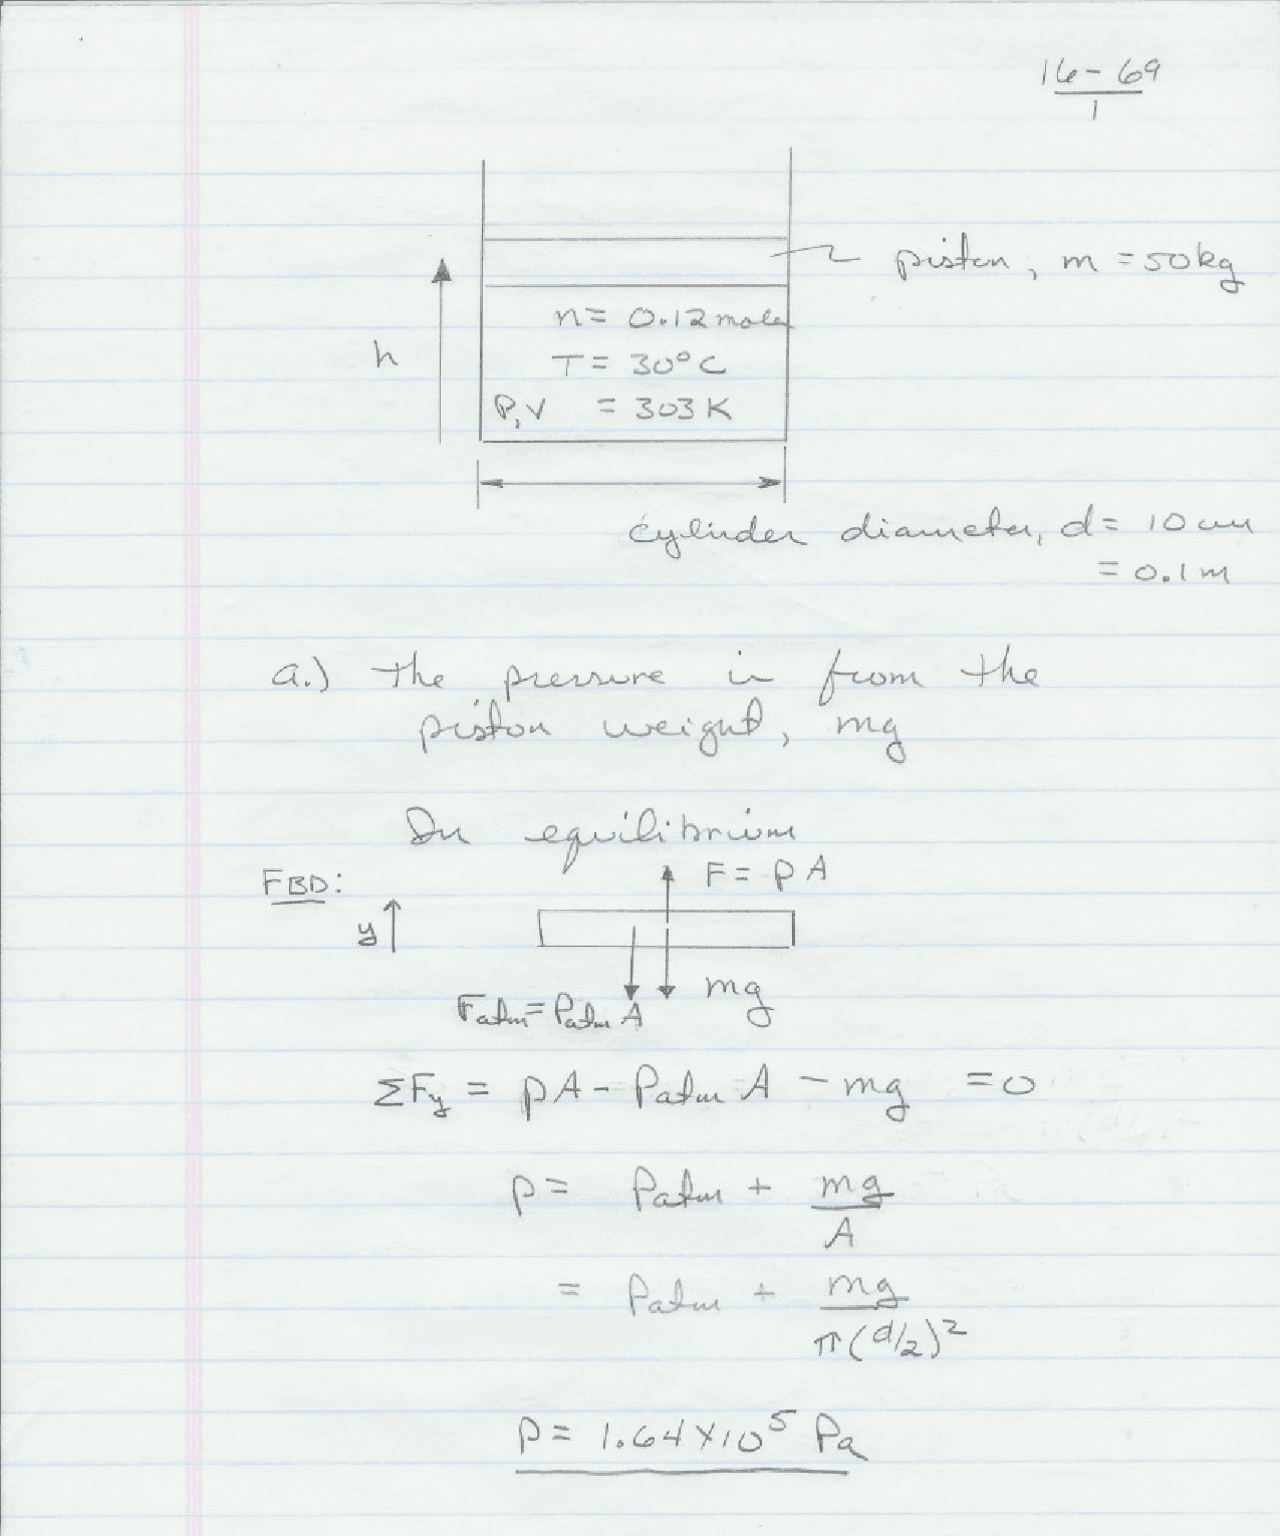 16-69
1
piston, m = 50kg
n = 0.12 moles
h
T = 30°C
P,V = 303K
cylinder diameter, d = 10 cm
= 0.1m
a.) The pressure is from the
piston weight, mg
In equilibrium
F = pA
FBD:
y
mg
Fatm = Patm A
ΣFy = pA - Patm A - mg = 0
p = Patm + mg/A
= Patm + mg/π(d/2)²
p = 1.64 x 10⁵ Pa